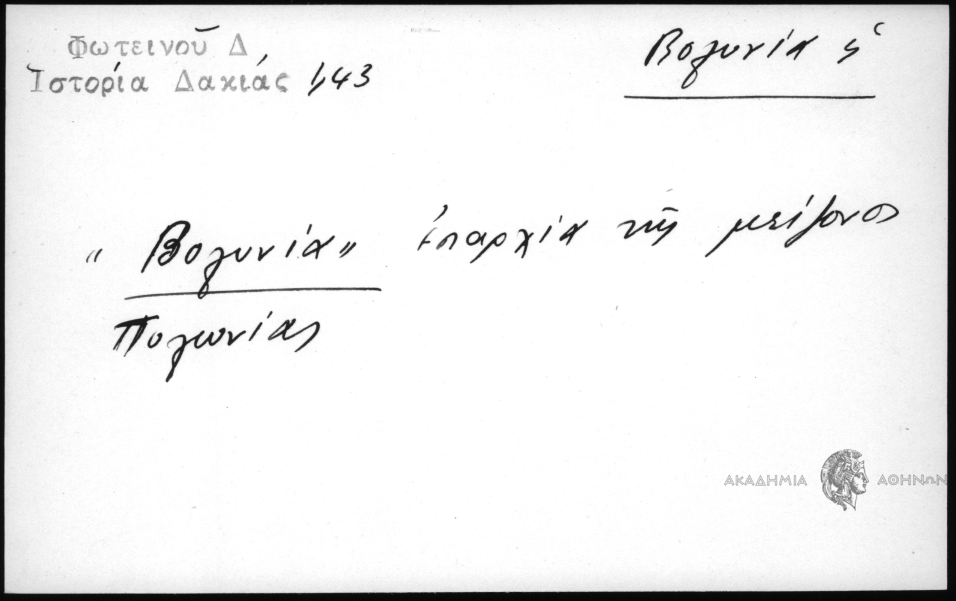 Φωτεινοῦ Δ
Ἱστορία Δακιάς 1,43
Βολυνία ἡ
"Βολυνία" ἐπαρχία τῆς μείζονος
Πολωνίας
ΑΚΑΔΗΜΙΑ ΑΘΗΝΩΝ